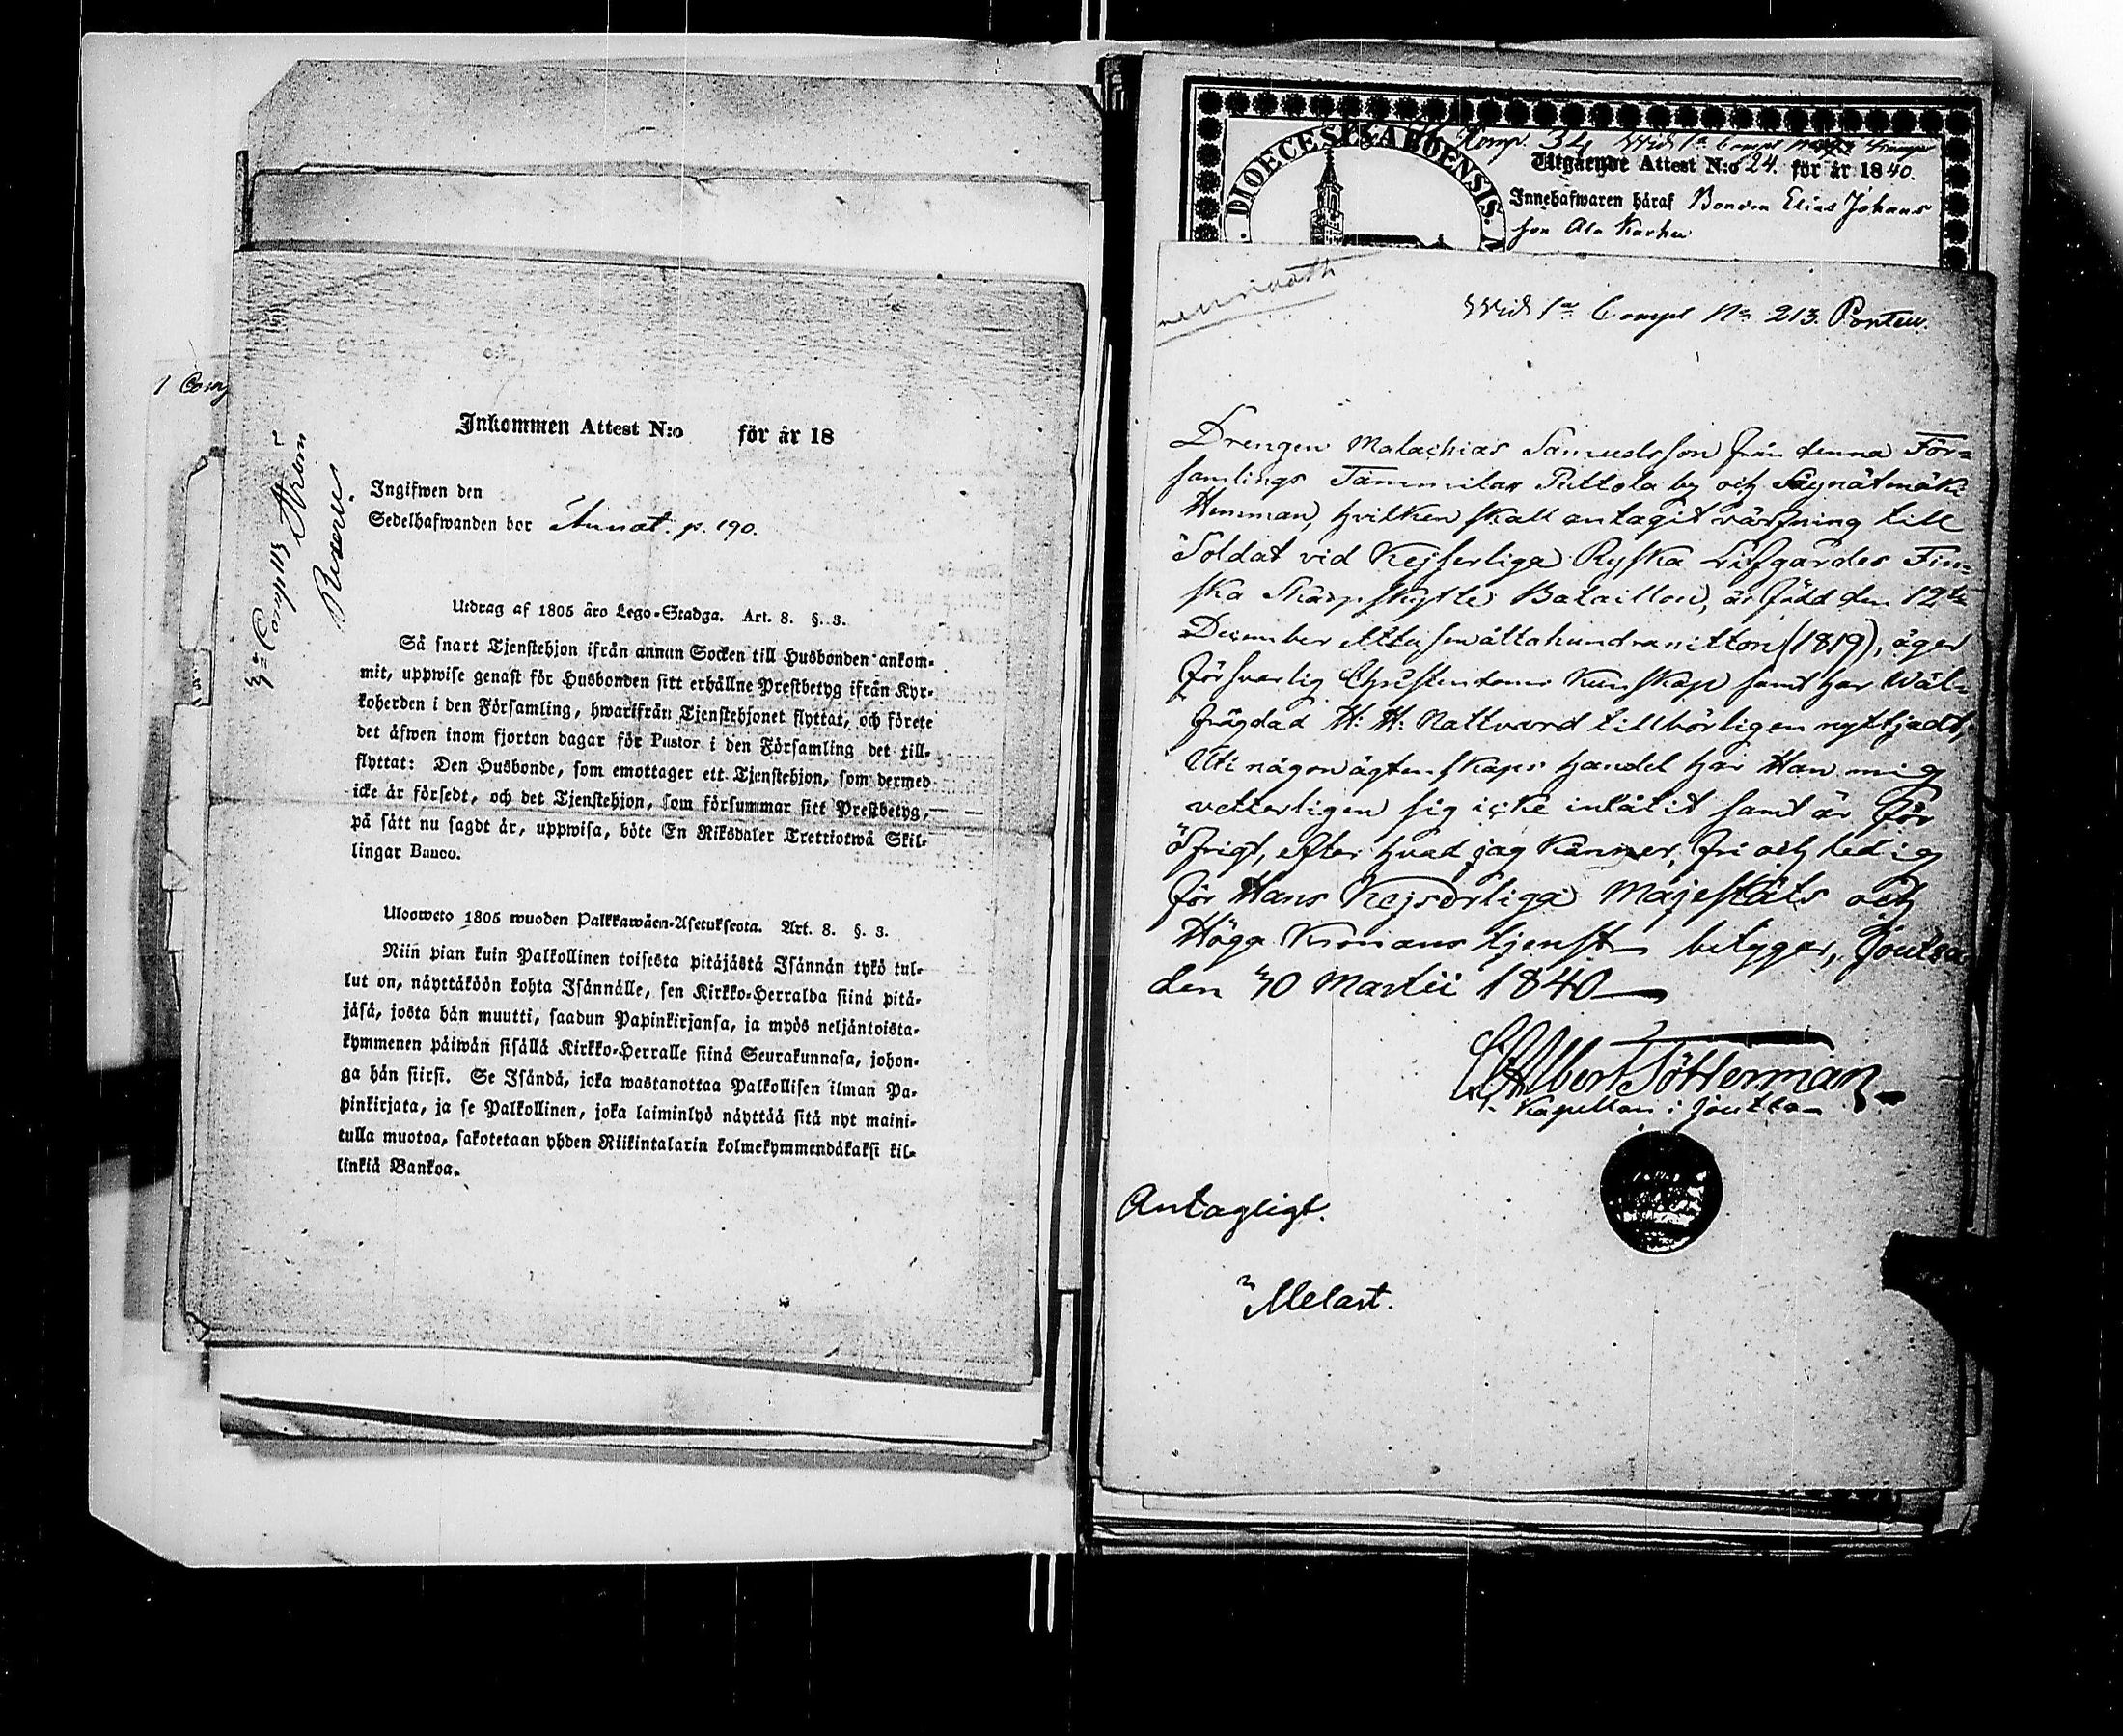 1 Comp
3=Compani
Ström
Reserv.
Inkommen Attest N:o för år 18
Ingifwen den
Sedelhafwanden bor Annat. p. 190.
Utdrag af 1805 års Lego-Stadga. Art. 8. §. 3.
Så snart Tjenstehjon ifrån annan Socken till Husbonden ankom-
mit, uppwise genast för Husbonden sitt erhållne Prestbetyg ifrån Kyr-
koherden i den Församling, hwarifrån Tjenstehjonet flyttat, och förete
det äfwen inom fjorton dagar för Pastor i den Församling det till-
flyttat: Den Husbonde, som emottager ett Tjenstehjon, som dermed
icke är försedt, och det Tjenstehjon, som försummar sitt Prestbetyg,
på sätt nu sagdt är, uppwisa, böte En Riksdaler Trettiotwå Skil-
lingar Banco.
Uloosweto 1805 wuoden Palkkawäen-Asetuksesta. Art. 8. §. 3.
Niin pian kuin Palkollinen toisesta pitäjästä Isännän tykö tul-
lut on, näyttäköön kohta Isännälle, sen Kirkko-Herralda siinä pitä-
jäsä, josta hän muutti, saadun Papinkirjansa, ja myös neljäntoista-
kymmenen päiwän sisällä Kirkko-Herralle siinä Seurakunnasa, johon-
ga hän siirsi. Se Isändä, joka wastanottaa Palkollisen ilman Pa-
pinkirjata, ja se Palkollinen, joka laiminlyö näyttää sitä nyt maini-
tulla muotoa, sakotetaan yhden Riikintalarin kolmekymmendäkaksi kil-
linkiä Bankoa.
DIOECESIS ABOENSIS.
Komp. 34 Wid 1a Compt
Utgående Attest N:o 24. för år 1840.
Innehafwaren häraf Bonden Elias Johans
son Ala Karhu
Wid 1a Compt No 213. Pontus.
Drengen Malachias Samuelsson från denna För=
samlings Tammilax Puttola by och Säynätmäki
Hemman, hvilken skall antagit värfning till
Soldat vid Kejserliga Ryska Lifgardes Fin=
ska Skarpskytte Bataillon, är född den 12te
December Ettusenåttahundranitton (1819), äger
försvarlig Christendoms Kunskap samt har Wäl-
frägdad H: H: Nattvard tillbörligen nyttjadt,
Uti någon ägtenskaps handel har Han mig
vetterligen sig icke inlåtit samt är för
öfrigt, efter hvad jag känner, fri och ledig
för Hans Kejserliga Majestäts och
Höga Kronans tjenst betygar, Joutsa
den 30 Martii 1840
Albert Sötterman
Kapellan i Joutsa
Antagligt.
Melart.